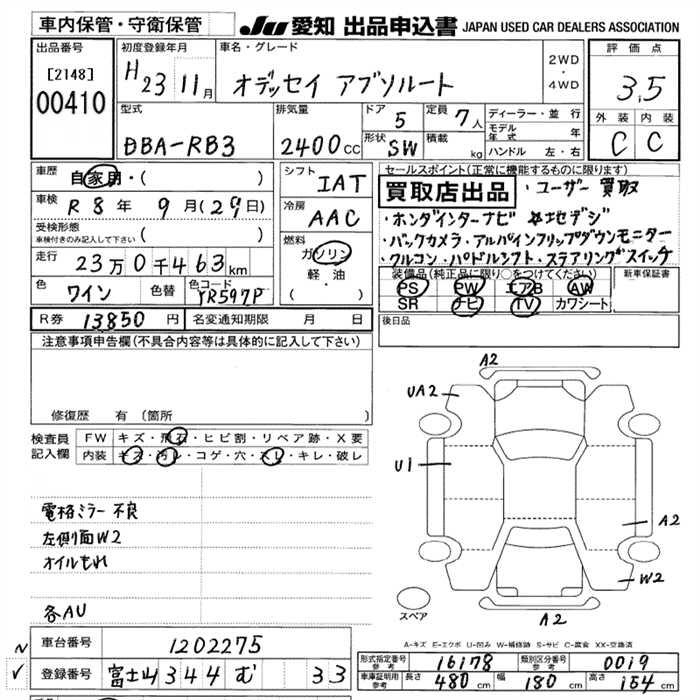 車内保管・守衛保管
JU 愛知 出品申込書 JAPAN USED CAR DEALERS ASSOCIATION
出品番号
[2148]
00410
初度登録年月
H 23 11月
車名・グレード
オデッセイ アブソルート
2WD
・
4WD
評価点
3.5
外装 内装
C C
型式
DBA-RB3
排気量
2400cc
ドア 5
形状 SW
定員 7人
積載 kg
ディーラー・並行
モデル年式 年
ハンドル 左・右
車歴 自家用・( )
車検 R8年 9月(29日)
受検形態
車検付きのみ記入して下さい ( )
走行 23万0千463km
色 ワイン
色替
色コード YR597P
シフト IAT
冷房 AAC
燃料
ガソリン
軽・油
( )
セールスポイント(正常に機能するものに限ります)
買取店出品 ・ユーザー買取
・ホンダインターナビ ・地デジ
・バックカメラ・アルパインフリップダウンモニター
・クルコン・パドルシフト・ステアリングスイッチ
装備品(純正品に限り○をつけてください)
新車保証書
PS PW エアB AW
SR ナビ TV カワシート
後日品
R券 13850円
名変通知期限 月 日
注意事項申告欄(不具合内容等は具体的に記入して下さい)
修復歴 有(箇所 )
検査員記入欄
FW キズ・飛石・ヒビ割・リペア跡・X要
内装 キズ・汚レ・コゲ・穴・スレ・キレ・破レ
電格ミラー不良
左側面W2
オイルもれ
各AU
A2
UA2
U1
A2
W2
A2
スペア
A-キズ E-エクボ U-凹み W-補修跡 S-サビ C-腐食 XX-交換済
N
車台番号 1202275
登録番号 富士山 344 む 33
型式指定番号 参考 16178
類別区分番号 参考 0019
車庫証明用 参考 長さ 480cm 幅 180cm 高さ 154cm